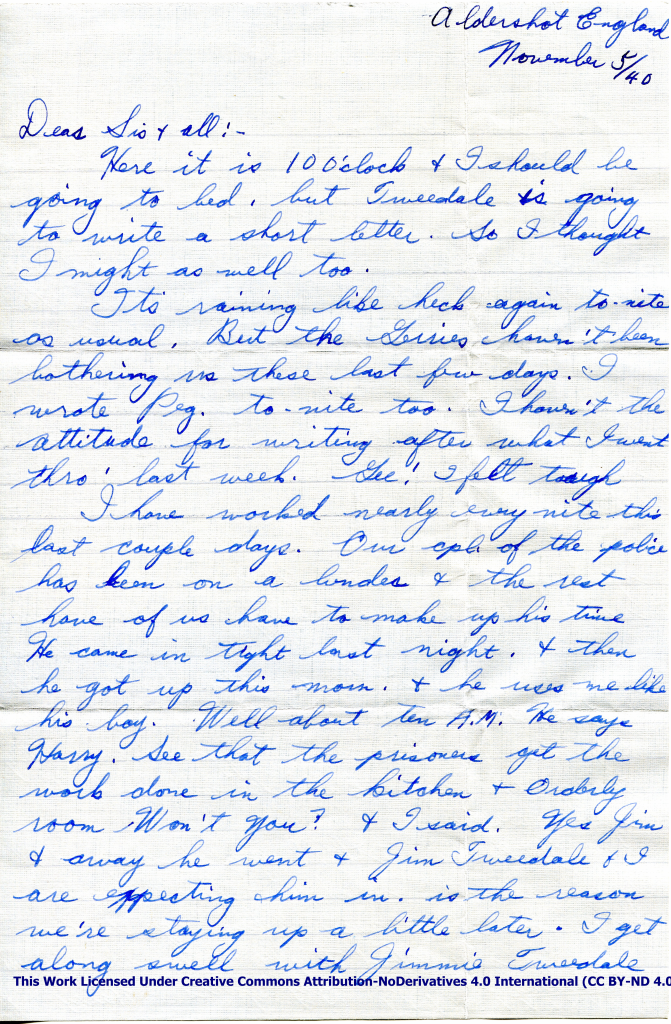 Aldershot England
November 5/40
Dear Sis & all:-
Here it is 10 O'clock & I should be
going to bed, but Tweedale is going
to write a short letter. So I thought
I might as well too.
It's raining like heck again to-nite
as usual. But the Gerries haven't been
bothering us these last few days. I
wrote Peg. to-nite too. I haven't the
attitude for writing after what I went
thro' last week. Gee! I felt tough
I have worked nearly every nite this
last couple days. Our cpl. of the police
has been on a bender & the rest
have of us have to make up his time
He came in tight last night. & then
he got up this morn. & he uses me like
his boy. Well about ten A.M. He says
Harry. See that the prisoners get the
work done in the kitchen & Orderly
room Won't you? & I said. Yes Jim
& away he went & Jim Tweedale & I
are expecting him in. is the reason
we're staying up a little later. I get
along swell with Jimmie Tweedale
This Work Licensed Under Creative Commons Attribution-NoDerivatives 4.0 International (CC BY-ND 4.0